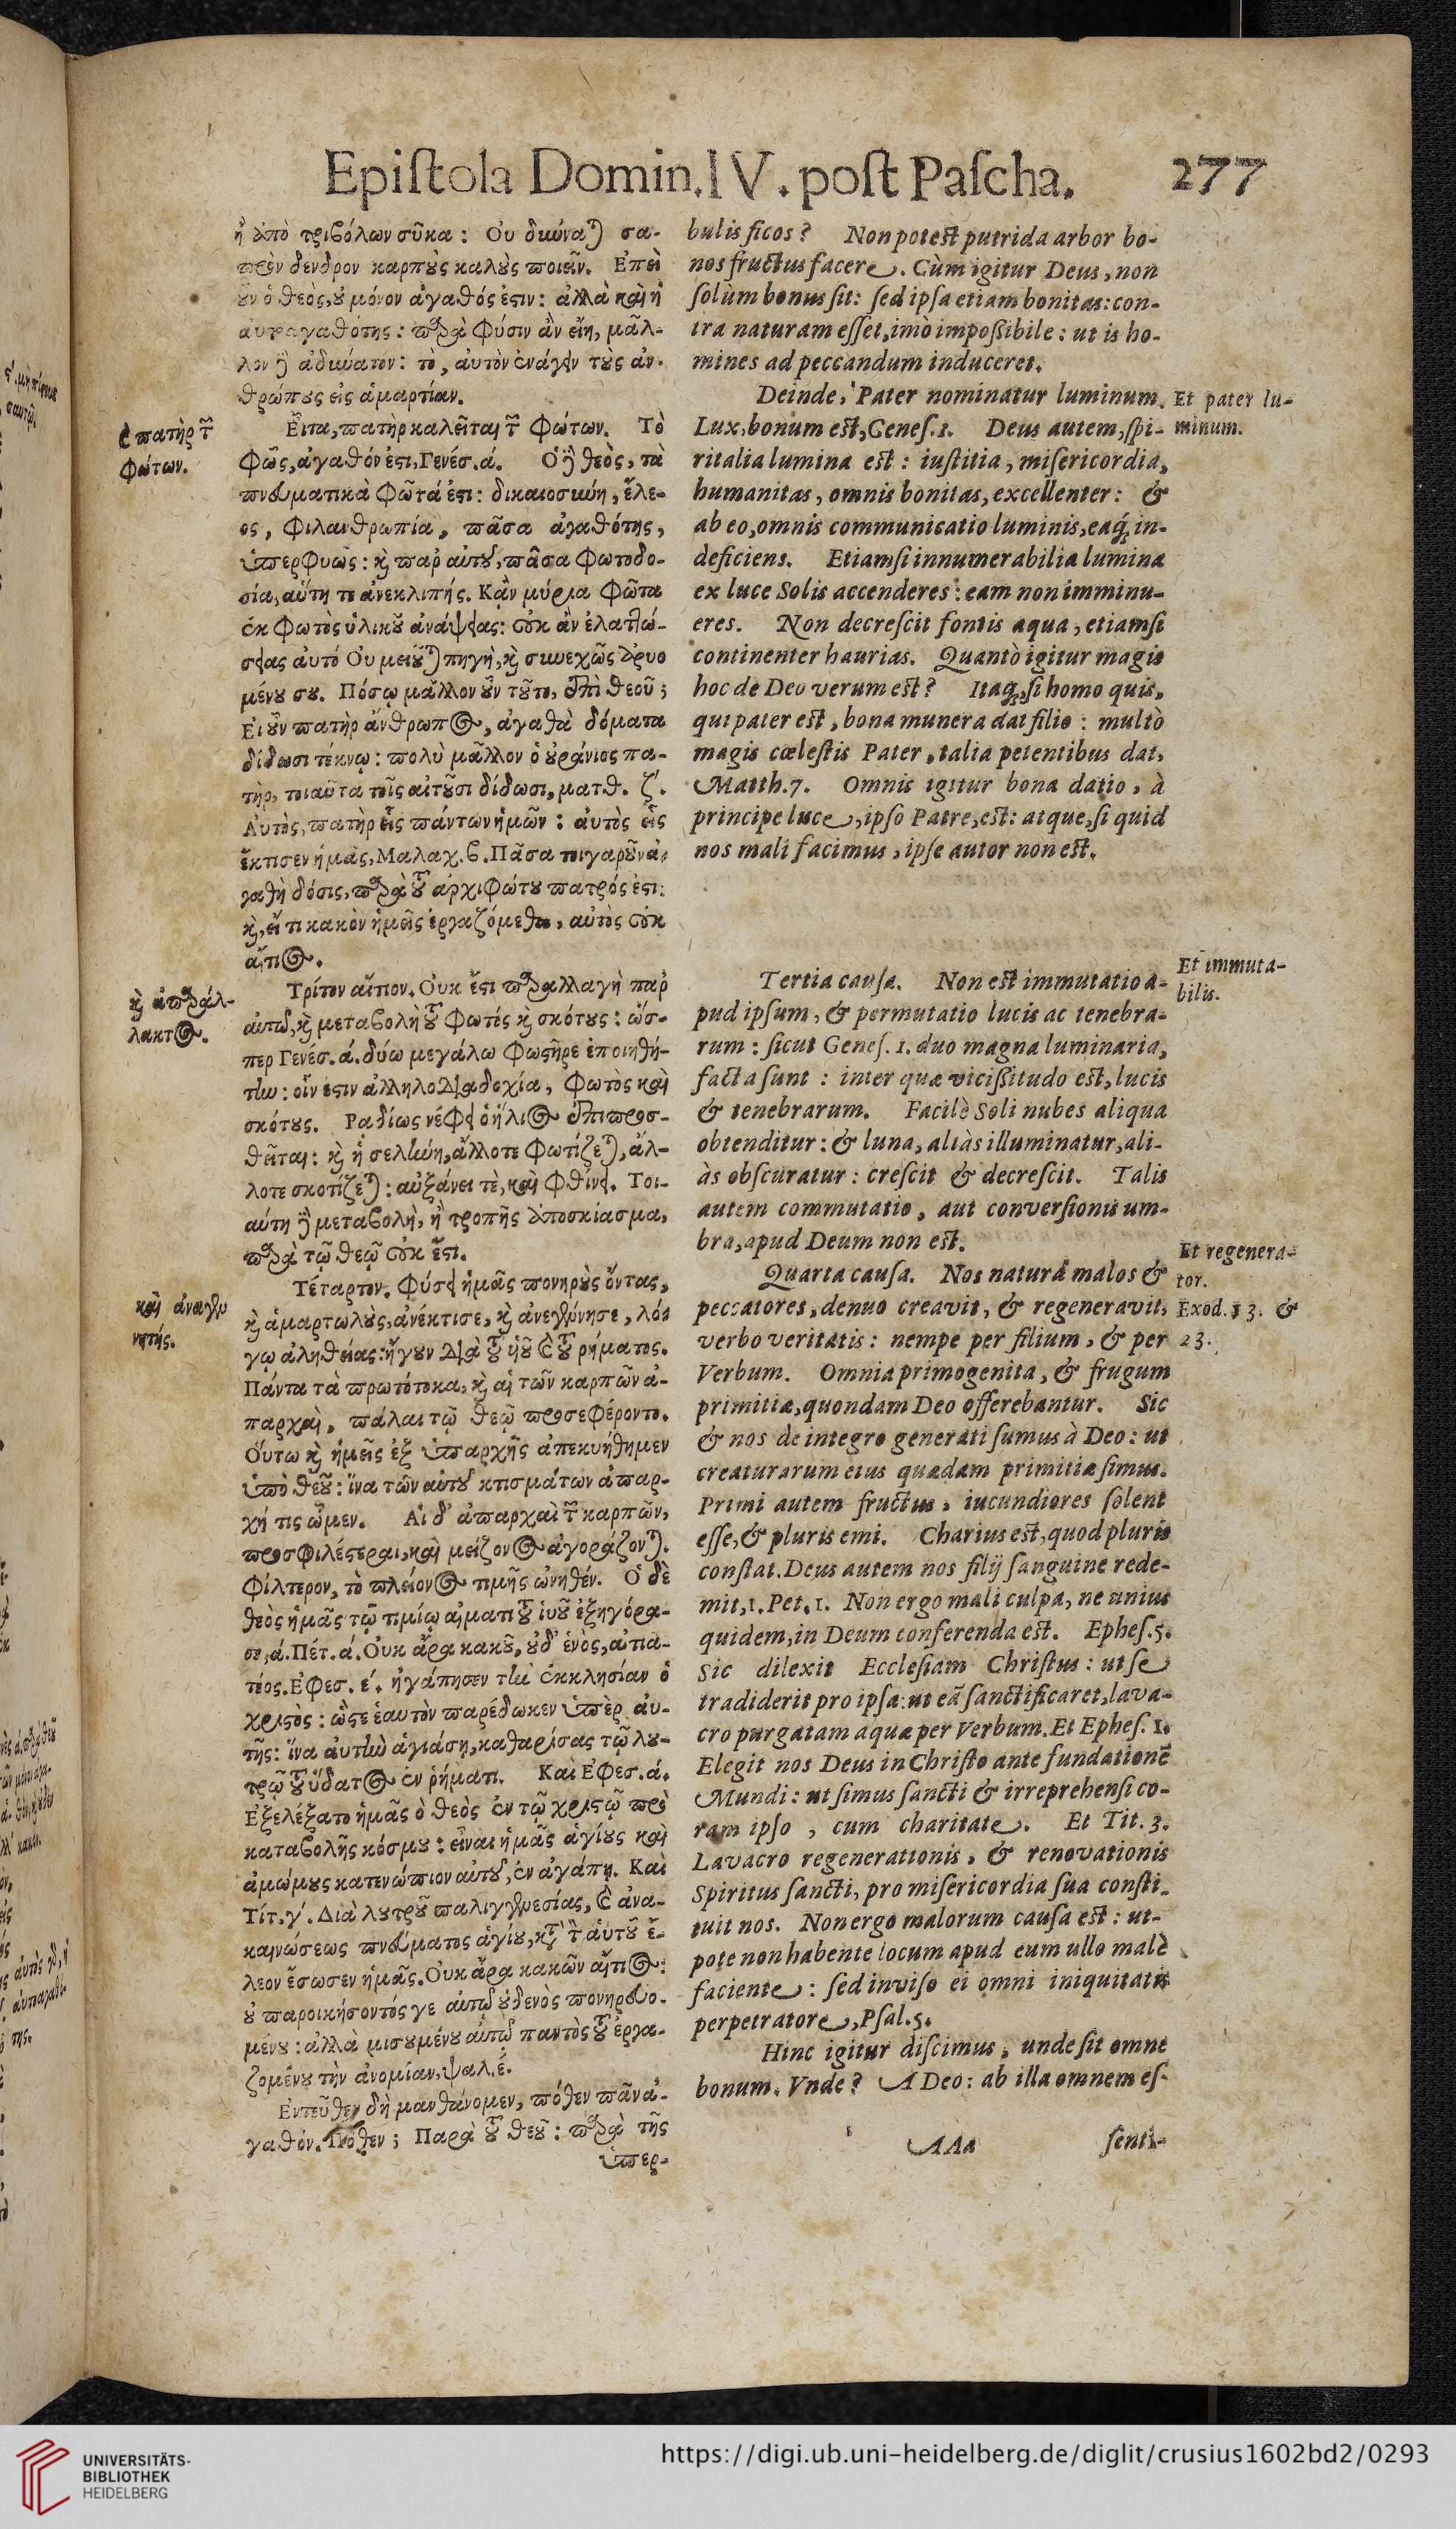 Epiſtola Domin. IV. poſt Paſcha. 277
ἢ ἀπὸ τριβόλων σῦκα: Οὐ δύναται σα-
πρὸν δένδρον καρποὺς καλοὺς ποιεῖν. Ἐπεὶ
οὖν ὁ θεὸς, οὐ μόνον ἀγαθός ἐστιν: ἀλλὰ καὶ ἡ
αὐτοαγαθότης: παρὰ φύσιν ἂν εἴη, μᾶλ-
λον δὲ ἀδύνατον: τὸ, αὐτὸν ἐνάγειν τοὺς ἀν-
θρώπους εἰς ἁμαρτίαν.
Εἶτα, πατὴρ καλεῖται τῶν φώτων. Τὸ
φῶς, ἀγαθόν ἐστι, Γενέσ. ά. Ὁ δὲ θεὸς, τὰ
πνευματικὰ φῶτά ἐστι: δικαιοσύνη, ἔλε-
ος, φιλανθρωπία, πᾶσα ἀγαθότης,
ὑπερφυῶς: καὶ παρ αὐτοῦ, πᾶσα φωτοδο-
σία, αὕτη τε ἀνεκλιπής. Κἂν μύρια φῶτα
ἐκ φωτὸς ἡλικοῦ ἀνάψειας: οὐκ ἂν ἐλαττώ-
σειας αὐτό Οὐ μειοῦται πηγὴ, καὶ συνεχῶς ἀρυο
μένου σου. Πόσῳ μᾶλλον οὖν τοῦτο, ἐπὶ θεοῦ;
Εἰ οὖν πατὴρ ἄνθρωπος, ἀγαθὰ δόματα
δίδωσι τέκνῳ: πολὺ μᾶλλον ὁ οὐράνιος πα-
τὴρ, τοιαῦτα τοῖς αἰτοῦσι δίδωσι, ματθ. ζ΄.
Αὐτὸς, πατὴρ εἷς πάντων ἡμῶν: αὐτὸς εἷς
ἔκτισεν ἡμᾶς, Μαλαχ. β. Πᾶσα τοιγαροῦν ἀ-
γαθὴ δόσις, παρὰ τοῦ ἀρχιφώτου πατρός ἐστι:
καὶ, εἴ τι κακὸν ἡμεῖς ἐργαζόμεθα, αὐτὸς οὐκ
αἴτιος.
Τρίτον αἴτιον. Οὐκ ἔστι παραλλαγὴ παρ
αὐτῷ, καὶ μεταβολὴ τοῦ φωτός καὶ σκότους: ὥσ-
περ Γενέσ. ά. δύω μεγάλω φωστῆρε ἐποιηθή-
την: οἷν ἐστιν ἀλληλοδιαδοχία, φωτὸς καὶ
σκότους. Ραδίως νέφει ὁ ἥλιος ἐπιπροσ-
θεῖται: καὶ ἡ σελήνη, ἄλλοτε φωτίζεται, ἄλ-
λοτε σκοτίζεται: αὐξάνει τὲ, καὶ φθίνει. Τοι-
αύτη δὲ μεταβολὴ, ἢ τροπῆς ἀποσκίασμα,
παρὰ τῷ θεῷ οὐκ ἔστι.
Τέταρτον. Φύσει ἡμᾶς πονηροὺς ὄντας,
καὶ ἁμαρτωλοὺς, ἀνέκτισε, καὶ ἀνεγέννησε, λό-
γῳ ἀληθείας: ἤγουν διὰ τοῦ υἱοῦ καὶ τοῦ ρήματος.
Πάντα τὰ πρωτότοκα, καὶ αἱ τῶν καρπῶν ἀ-
παρχαὶ, πάλαι τῷ θεῷ προσεφέροντο.
Οὕτω καὶ ἡμεῖς ἐξ ὑπαρχῆς ἀπεκυήθημεν
ὑπὸ θεοῦ: ἵνα τῶν αὐτοῦ κτισμάτων ἀπαρ-
χή τις ὦμεν. Αἱ δ' ἀπαρχαὶ τῶν καρπῶν,
προσφιλέστεραι, καὶ μείζονος ἀγοράζονται.
Φίλτερον, τὸ πλείονος τιμῆς ὠνηθέν. Ὁ δὲ
θεὸς ἡμᾶς τῷ τιμίῳ αἵματι τοῦ ὑιοῦ ἐξηγόρα-
σε, ά. Πέτ. ά. Οὐκ ἄρα κακοῦ, οὐδ' ἑνὸς, αἰτια-
τέος. Ἐφεσ. έ. ἠγάπησεν τὴν ἐκκλησίαν ὁ
χριστὸς: ὥστε ἑαυτὸν παρέδωκεν ὑπὲρ αὐ-
τῆς: ἵνα αὐτὴν ἁγιάσῃ, καθαρίσας τῷ λου-
τρῷ τοῦ ὕδατος ἐν ῥήματι. Καὶ Ἐφεσ. ά.
Ἐξελέξατο ἡμᾶς ὁ θεὸς ἐν τῷ χριστῷ πρὸ
καταβολῆς κόσμου: εἶναι ἡμᾶς ἁγίους καὶ
ἀμώμους κατενώπιον αὐτοῦ, ἐν ἀγάπῃ. Καὶ
Τίτ. γ΄. Διὰ λουτροῦ παλιγγενεσίας, καὶ ἀνα-
καινώσεως πνεύματος ἁγίου, κατὰ τὸ αὑτοῦ ἔ-
λεον ἔσωσεν ἡμᾶς. Οὐκ ἄρα κακῶν αἴτιος:
οὐ παροικήσοντός γε αὐτῷ οὐδενὸς πονηρευο-
μένου: ἀλλὰ μισουμένου αὐτῷ παντὸς τοῦ ἐργα-
ζομένου τὴν ἀνομίαν, ψαλ. έ.
Ἐντεῦθεν δὴ μανθάνομεν, πόθεν πᾶν ἀ-
γαθόν. Πόθεν; Παρὰ τοῦ θεοῦ: παρὰ τῆς
ὑπερ-
καὶ πατὴρ τῶν
φώτων.
καὶ ἀπαράλ-
λακτος.
καὶ ἀναγεν
νητής.
bulis ficos? Non poteſt putrida arbor bo-
nos fructus facere. Cùm igitur Deus, non
ſolùm bonus ſit: ſed ipſa etiam bonitas: con-
tra naturam eſſet, imò impoſſibile: ut is ho-
mines ad peccandum induceret.
Deinde, Pater nominatur luminum.
Lux, bonum eſt, Geneſ. 1. Deus autem, ſpi-
ritalia lumina eſt: iuſtitia, miſericordia,
humanitas, omnis bonitas, excellenter: &
ab eo, omnis communicatio luminis, eaq́; in-
deficiens. Etiamſi innumerabilia lumina
ex luce Solis accenderes: eam non imminu-
eres. Non decreſcit fontis aqua, etiamſi
continenter haurias. Quantò igitur magis
hoc de Deo verum eſt? Itaq;, ſi homo quis,
qui pater eſt, bona munera dat filio: multò
magis cœleſtis Pater, talia petentibus dat,
Matth. 7. Omnis igitur bona datio, à
principe luce, ipſo Patre, eſt: atque, ſi quid
nos mali facimus, ipſe autor non eſt.
Tertia cauſa. Non eſt immutatio a-
pud ipſum, & permutatio lucis ac tenebra-
rum: ſicut Geneſ. 1. duo magna luminaria,
facta ſunt: inter quæ viciſſitudo eſt, lucis
& tenebrarum. Facilè Soli nubes aliqua
obtenditur: & luna, aliàs illuminatur, ali-
às obſcuratur: creſcit & decreſcit. Talis
autem commutatio, aut converſionis um-
bra, apud Deum non eſt.
Quarta cauſa. Nos naturâ malos &
peccatores, denuo creavit, & regeneravit,
verbo veritatis: nempe per filium, & per
Verbum. Omnia primogenita, & frugum
primitiæ, quondam Deo offerebantur. Sic
& nos de integro generati ſumus à Deo: ut
creaturarum eius quædam primitiæ ſimus.
Primi autem fructus, iucundiores ſolent
eſſe, & pluris emi. Charius eſt, quod pluris
conſtat. Deus autem nos filij ſanguine rede-
mit, 1. Pet. 1. Non ergo mali culpa, ne unius
quidem, in Deum conferenda eſt. Epheſ. 5.
Sic dilexit Eccleſiam Chriſtus: ut ſe
tradiderit pro ipſa: ut eã ſanctificaret, lava-
cro purgatam aquæ per Verbum. Et Epheſ. 1.
Elegit nos Deus in Chriſto ante fundationē
Mundi: ut ſimus ſancti & irreprehenſi co-
ram ipſo, cum charitate. Et Tit. 3.
Lavacro regenerationis, & renovationis
Spiritus ſancti, pro miſericordia ſua conſti-
tuit nos. Non ergo malorum cauſa eſt: ut-
pote non habente locum apud eum ullo malè
faciente: ſed inviſo ei omni iniquitatis
perpetratore, Pſal. 5.
Hinc igitur diſcimus, unde ſit omne
bonum. Vnde? A Deo: ab illa omnem eſ-
AAa ſenti-
Et pater lu-
minum.
Et immuta-
bilis.
Et regenera-
tor.
Exod. 13. &
23.
UNIVERSITÄTS-
BIBLIOTHEK
HEIDELBERG
https://digi.ub.uni-heidelberg.de/diglit/crusius1602bd2/0293